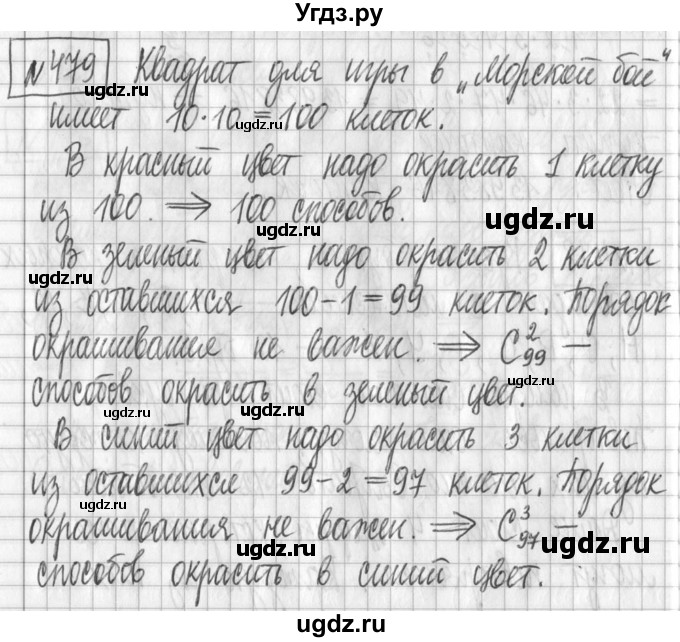 Угдз.ру
№479 Квадрат для игры в „Морской бой“
имеет 10·10=100 клеток.
ugdz.ru
В красный цвет надо окрасить 1 клетку
ugdz.ru
из 100. ⇒ 100 способов.
ugdz.ru
ugdz.ru
В зеленый цвет надо окрасить 2 клетки
ugdz.ru
из оставшихся 100-1=99 клеток. Порядок
окрашивания не важен. ⇒ C²₉₉ —
ugdz.ru
ugdz.ru
способов окрасить в зеленый цвет.
ugdz.ru
ugdz.ru
В синий цвет надо окрасить 3 клетки
из оставшихся 99-2=97 клеток. Порядок
ugdz.ru
окрашивания не важен. ⇒ C³₉₇ —
ugdz.ru
ugdz.ru
способов окрасить в синий цвет.
ugdz.ru
ugdz.ru